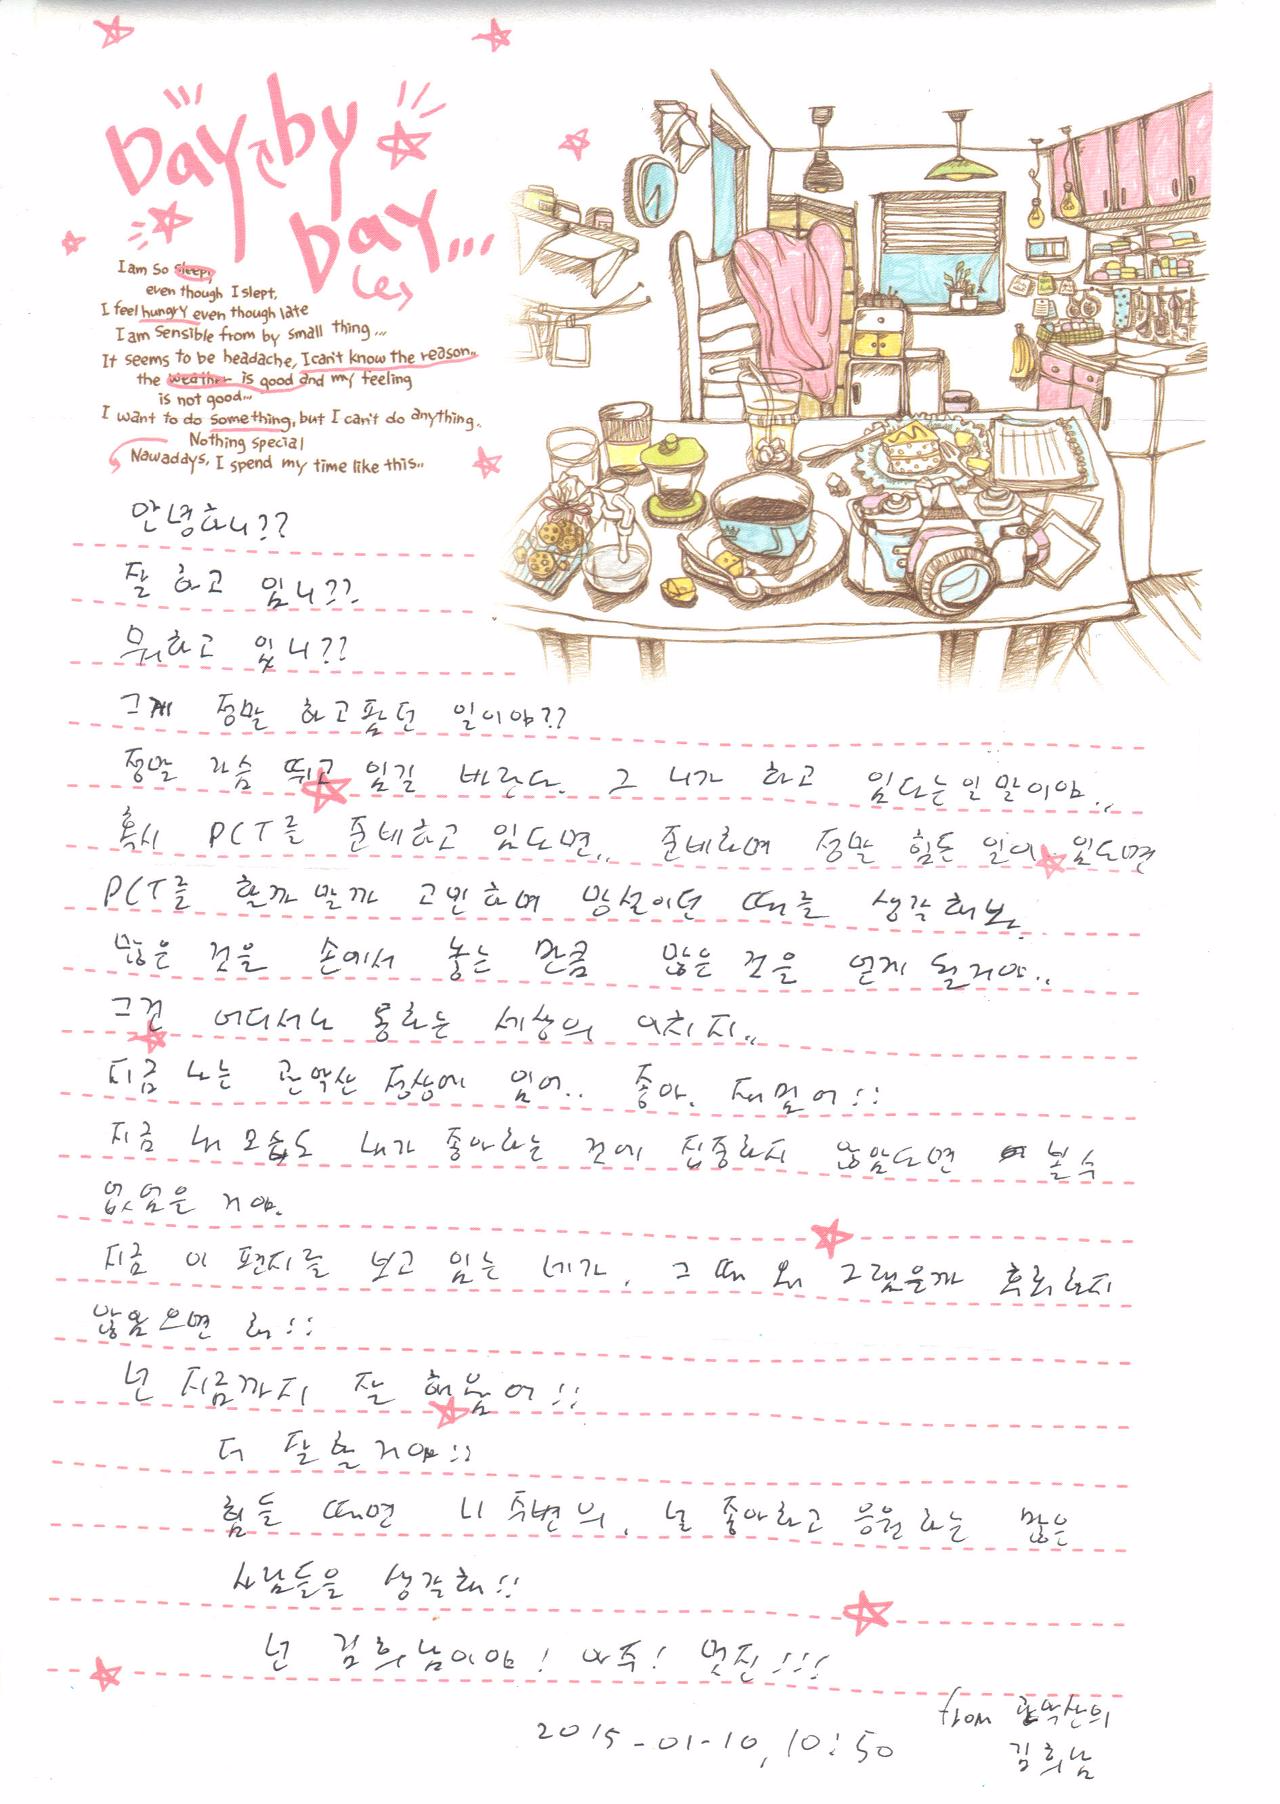 Day by
Day...
I am so sleepy
even though I slept,
I feel hungry even though late
I am sensible from by small thing...
It seems to be headache, I can't know the reason..
the weather is good and my feeling
is not good...
I want to do something, but I can't do anything..
Nothing special
Nawadays, I spend my time like this..
안녕하니??
잘 하고 있니??
뭐하고 있니??
그게 정말 하고팠던 일이야??
정말 가슴 뛰고 있길 바란다. 그 니가 하고 있다는 일 말이야..
혹시 PCT를 준비하고 있다면.. 준비하며 정말 힘든 일이 있다면
PCT를 할까 말까 고민하며 망설이던 때를 생각해봐.
많은 것을 손에서 놓는 만큼 많은 것을 얻게 될거야..
그건 어디서나 통하는 세상의 이치지..
지금 나는 관악산 정상에 있어.. 좋아. 재밌어!!
지금 내 모습도 내가 좋아하는 것에 집중하지 않았다면 볼 수
없었을 거야.
지금 이 편지를 보고 있는 네가, 그 때 왜 그랬을까 후회하지
않았으면 해!!
넌 지금까지 잘 해왔어!!
더 잘 할거야!!
힘들 때면 니 주변의, 널 좋아하고 응원하는 많은
사람들을 생각해!!
넌 김희남이야! 아주! 멋진!!!
from 관악산의
김희남
2015-01-10, 10:50